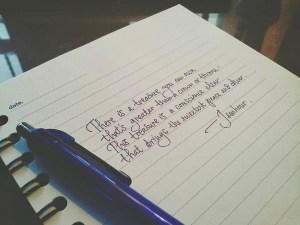 date.
There is a treasure you can own
that's greater than a crown or throne:
This treasure is a conscience clear
that brings the sweetest peace and cheer.